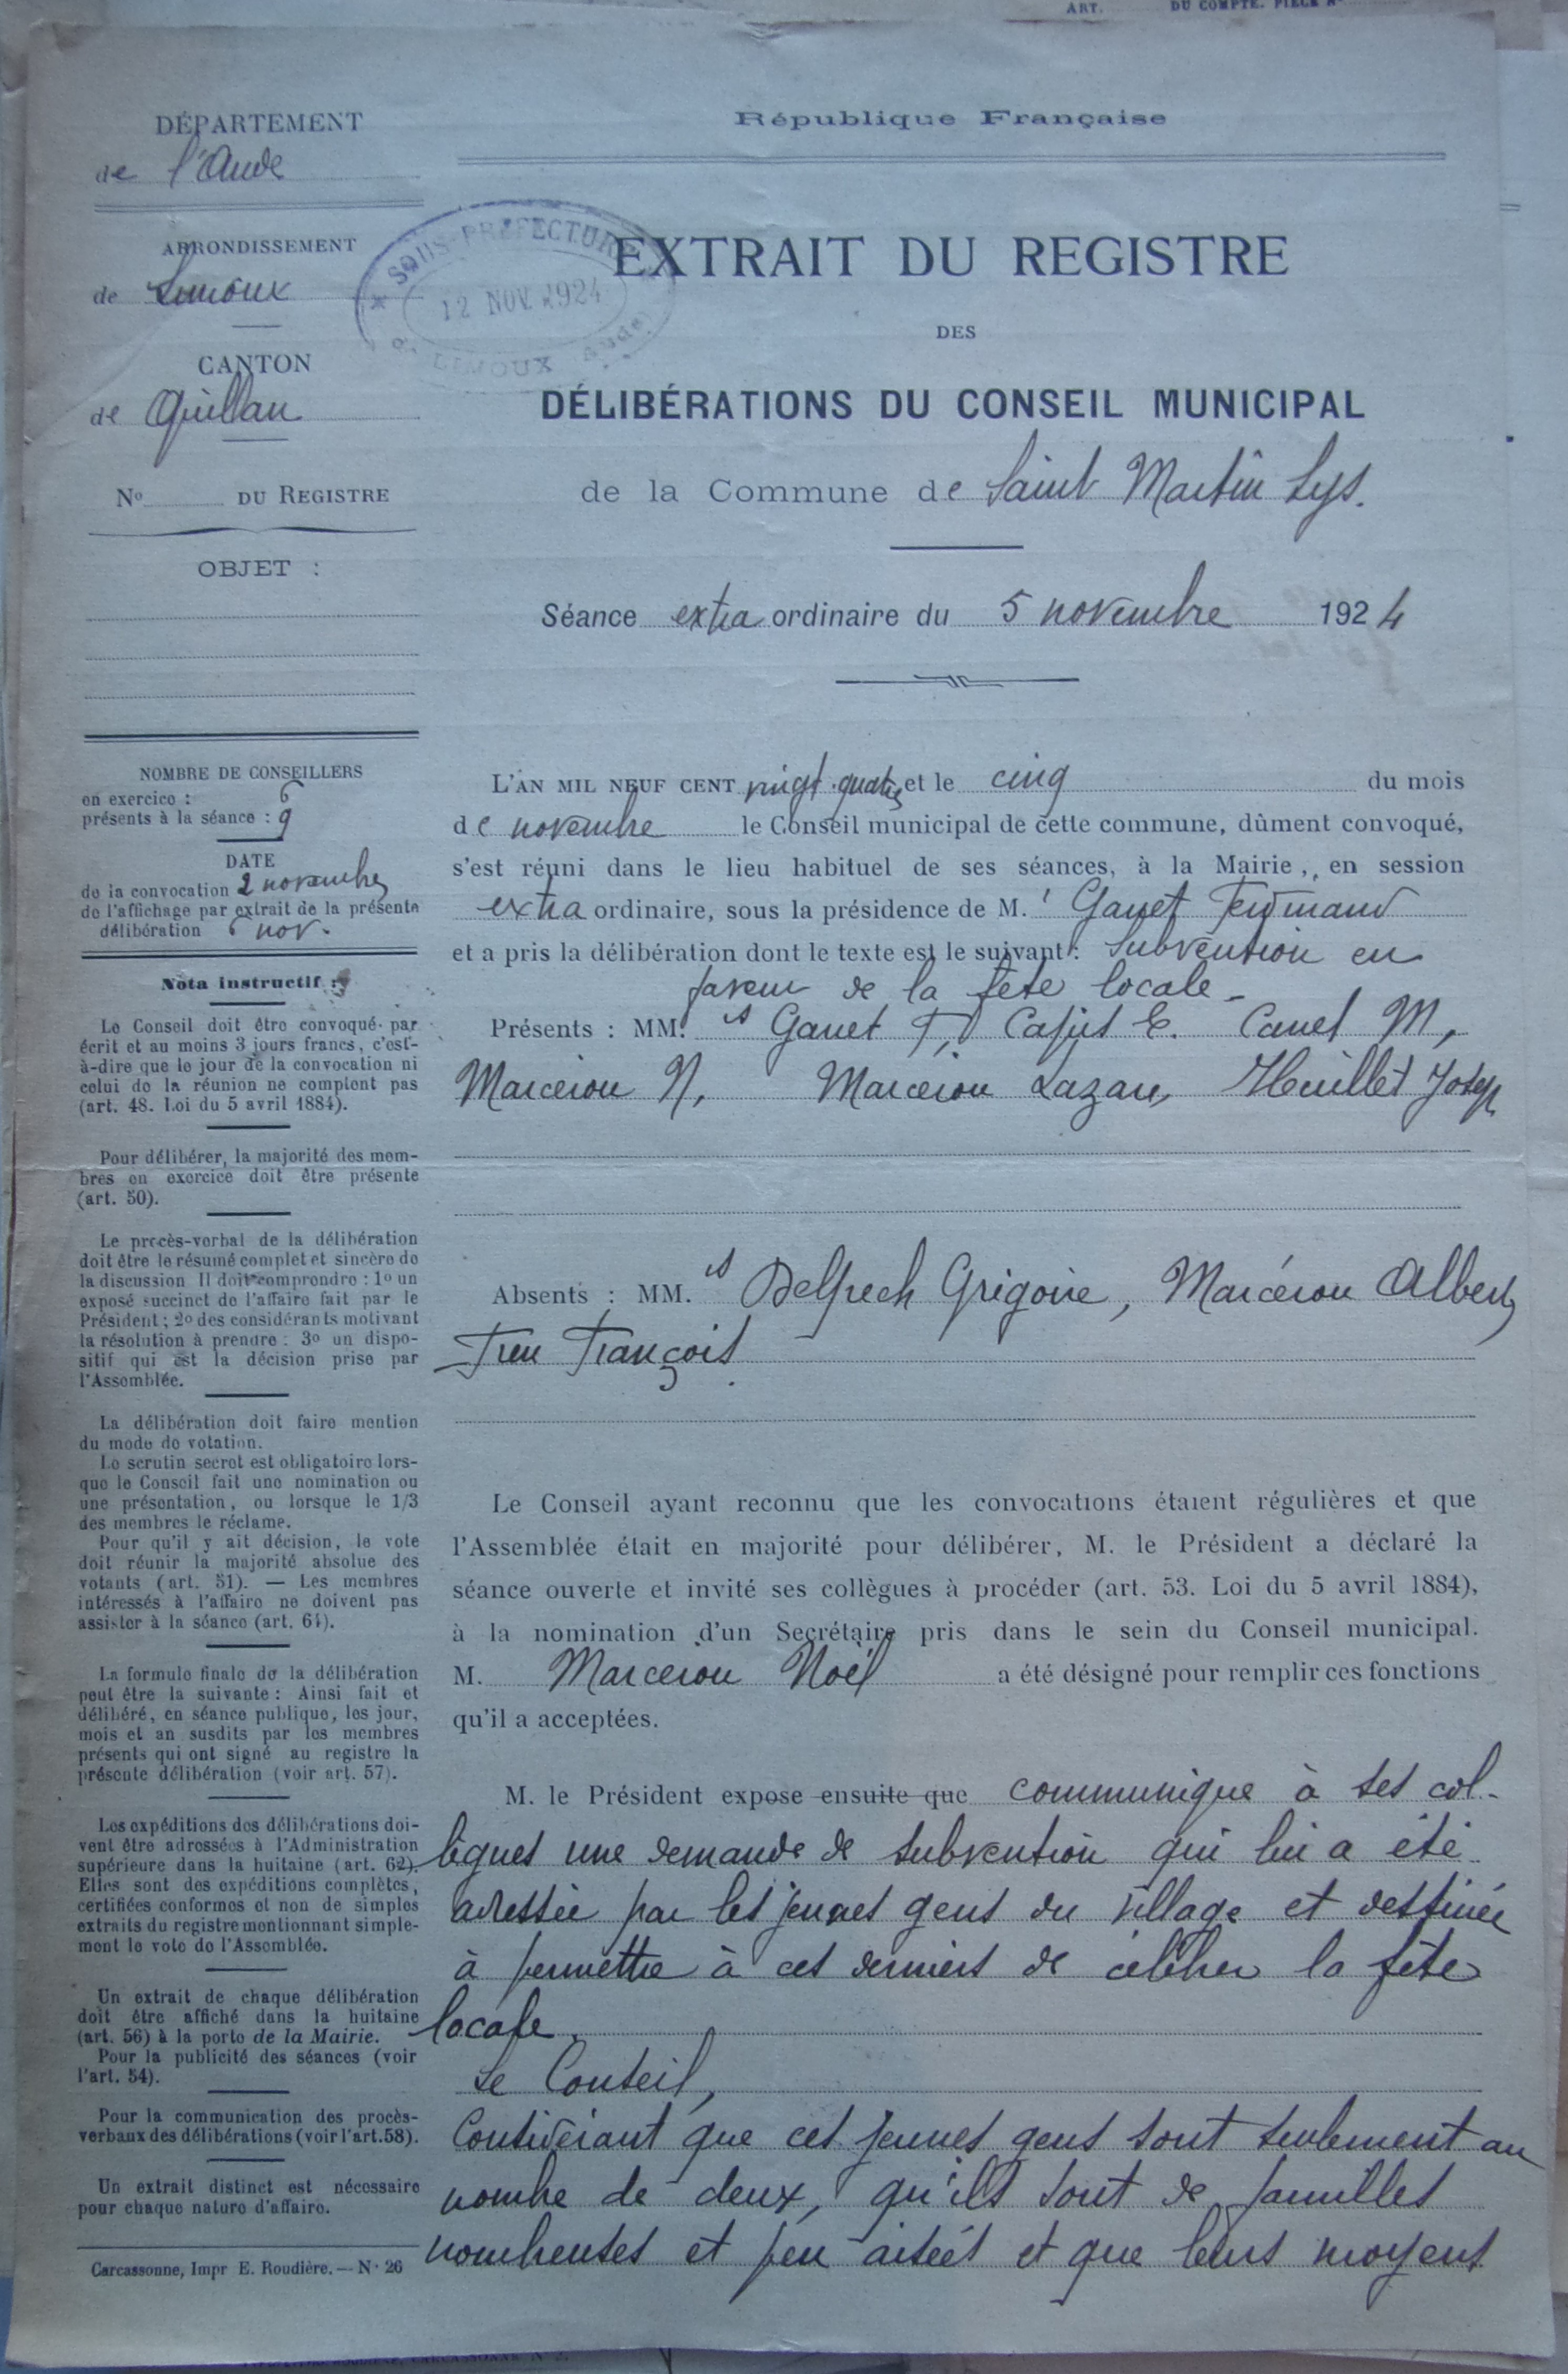 ART. DU COMPTE. PIÈCE N°
DÉPARTEMENT
de l'Aude
ARRONDISSEMENT
de Limoux
CANTON
de Quillan
No DU REGISTRE
OBJET :
NOMBRE DE CONSEILLERS
en exercice : 6
présents à la séance : 9
DATE
de la convocation 2 novembre
de l'affichage par extrait de la présente
délibération 6 nov.
Nota instructif :
Le Conseil doit être convoqué par
écrit et au moins 3 jours francs, c'est-
à-dire que le jour de la convocation ni
celui de la réunion ne comptent pas
(art. 48. Loi du 5 avril 1884).
Pour délibérer, la majorité des mem-
bres en exercice doit être présente
(art. 50).
Le procès-verbal de la délibération
doit être le résumé complet et sincère de
la discussion Il doit comprendre : 1o un
exposé succinct de l'affaire fait par le
Président ; 2o des considérants motivant
la résolution à prendre : 3o un dispo-
sitif qui est la décision prise par
l'Assemblée.
La délibération doit faire mention
du mode de votation.
Le scrutin secret est obligatoire lors-
que le Conseil fait une nomination ou
une présentation, ou lorsque le 1/3
des membres le réclame.
Pour qu'il y ait décision, le vote
doit réunir la majorité absolue des
votants (art. 51). — Les membres
intéressés à l'affaire ne doivent pas
assister à la séance (art. 64).
La formule finale de la délibération
peut être la suivante : Ainsi fait et
délibéré, en séance publique, les jour,
mois et an susdits par les membres
présents qui ont signé au registre la
présente délibération (voir art. 57).
Les expéditions des délibérations doi-
vent être adressées à l'Administration
supérieure dans la huitaine (art. 62).
Elles sont des expéditions complètes,
certifiées conformes et non de simples
extraits du registre mentionnant simple-
ment le vote de l'Assemblée.
Un extrait de chaque délibération
doit être affiché dans la huitaine
(art. 56) à la porte de la Mairie.
Pour la publicité des séances (voir
l'art. 54).
Pour la communication des procès-
verbaux des délibérations (voir l'art. 58).
Un extrait distinct est nécessaire
pour chaque nature d'affaire.
Carcassonne, Impr E. Roudière. — N° 26
République Française
SOUS-PRÉFECTURE
12 NOV. 1924
LIMOUX Aude
EXTRAIT DU REGISTRE
DES
DÉLIBÉRATIONS DU CONSEIL MUNICIPAL
de la Commune de Saint Martin Lys.
Séance extra ordinaire du 5 novembre 1924
L'AN MIL NEUF CENT vingt quatre et le cinq du mois
de novembre le Conseil municipal de cette commune, dûment convoqué,
s'est réuni dans le lieu habituel de ses séances, à la Mairie, en session
extra ordinaire, sous la présidence de M. Ganet Ferdinand
et a pris la délibération dont le texte est le suivant : Subvention en
faveur de la fête locale -
Présents : MM. rs Ganet F, Cafut E. Canet M,
Marcerou N, Marcerou Lazare, Huillet Joseph
Absents : MM. rs Delpech Grégoire, Marcérou Albert,
Treu François.
Le Conseil ayant reconnu que les convocations étaient régulières et que
l'Assemblée était en majorité pour délibérer, M. le Président a déclaré la
séance ouverte et invité ses collègues à procéder (art. 53. Loi du 5 avril 1884),
à la nomination d'un Secrétaire pris dans le sein du Conseil municipal.
M. Marcerou Noël a été désigné pour remplir ces fonctions
qu'il a acceptées.
M. le Président expose ensuite que communique à ses col-
lègues une demande de subvention qui lui a été
adressée par les jeunes gens du village et destinée
à permettre à ces derniers de célébrer la fête
locale.
Le Conseil,
Considérant que ces jeunes gens sont seulement au
nombre de deux, qu'ils sont de familles
nombreuses et peu aisées et que leurs moyens